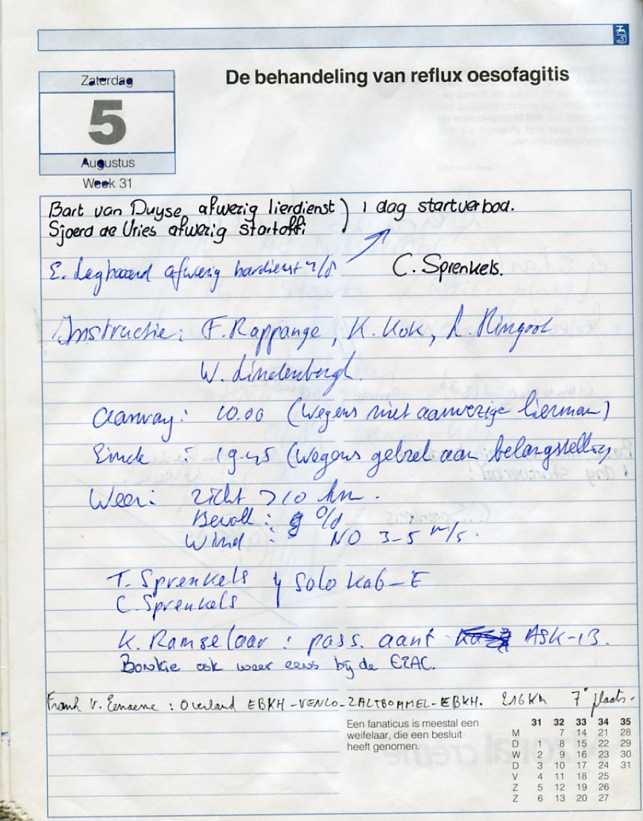 De behandeling van reflux oesofagitis
Zaterdag
5
Augustus
Week 31
Bart van Duyse afwezig lierdienst ) 1 dag startverbod.
Sjoerd de Vries afwezig startoff.
E. Leghoord afwezig bardienst 4/8
C. Sprenkels.
Instructie: F. Rappange, K. Kok, L. Ringoot
W. Lindenbergh.
Aanvang: 10.00 (wegens niet aanwezige lierman)
Einde : 19.45 (wegens gebrek aan belangstelling
Weer: zicht >10 km.
Bewolk :
Wind : NO 3-5 m/s.
T. Sprenkels } solo Ka6-E
C. Sprenkels
K. Ramselaar : pass. aant ASK-13.
Boukje ook weer eens bij de EZAC.
Frank v. : Overland EBKH-VENLO-ZALTBOMMEL-EBKH. 216Km 7e plaats.
Een fanaticus is meestal een
weifelaar, die een besluit
heeft genomen.
31 32 33 34 35
M 7 14 21 28
D 1 8 15 22 29
W 2 9 16 23 30
D 3 10 17 24 31
V 4 11 18 25
Z 5 12 19 26
Z 6 13 20 27